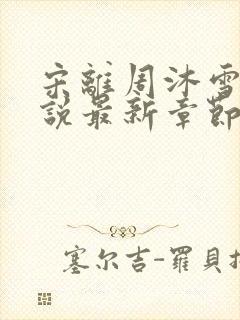 宋離周沐雪
說最新章節
塞尔吉-羅貝擔